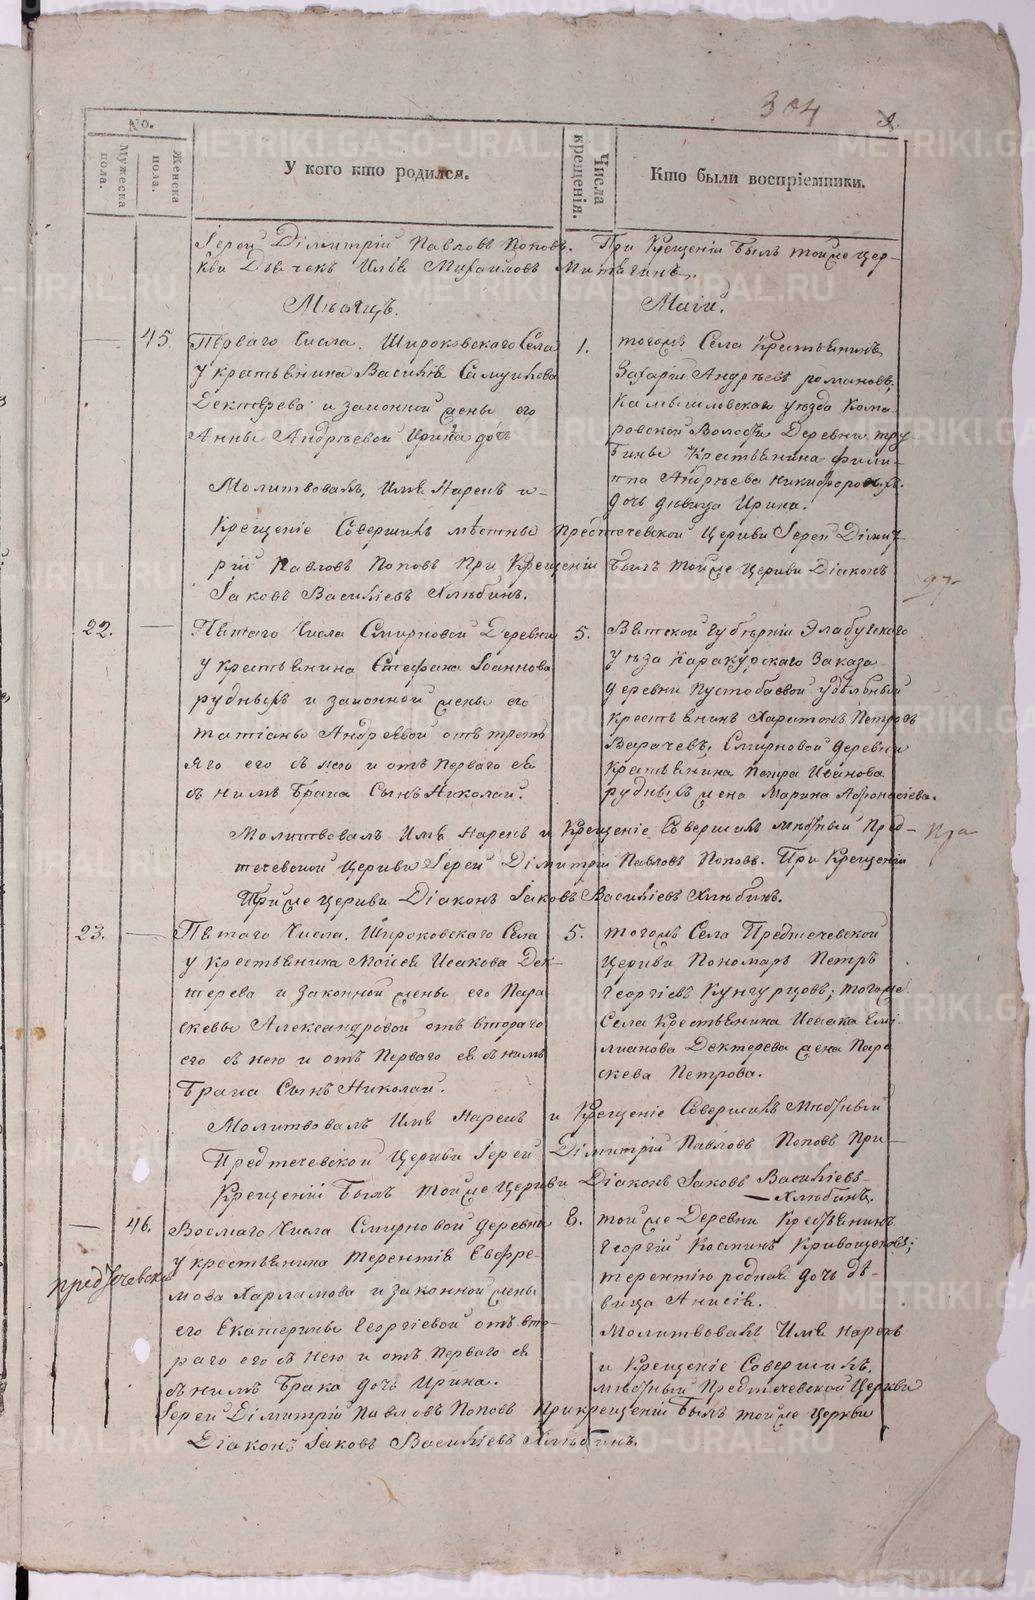 304
No.
Мужеска пола.
Женска пола.
У кого кто родился.
Числа крещенія.
Кто были воспріемники.
Іерей Дімитрій Павловъ Поповъ. При Крещеніи былъ тойже цер-
кви Дьячекъ Илья Михайловъ Митягинъ.
Мѣсяцъ. Маій.
45
Перваго Числа. Широковскаго Села
у крестьянина Василія Самуилова
Дектерева и законной жены его
Анны Андрѣевой Ирина дочь
1.
тогожъ Села Крестьянинъ
Захарій Андрѣевъ романовъ,
Камышловскаго уѣзда Кома-
ровской Волости Деревни тру-
бины Крестьянина фили-
ппа Андрѣева никифоровыхъ
дочь дѣвица Ирина.
Молитвовалъ, Имя Нарекъ и
Крещеніе Совершилъ мѣстный Предтечевской Церкви Іерей Діми-
рій Павловъ Поповъ При Крещеніи былъ тойже Церкви Діаконъ
Іаковъ Василіевъ Хлѣбинъ.
22.
Пятаго Числа Смирновой Деревни
у крестьянина Стефана Іоаннова
рудныхъ и законной жены его
татіаны Андреявой отъ треть
яго его съ нею и отъ Перваго ея
съ нимъ брака Сынъ Николай.
5.
Вятской губѣрніи Элабугскаго
уѣза Каракурскаго Заказа
деревни Пустобаевой удѣльный
крестьянинъ Харитонъ Петровъ
Варачевъ, Смирновой деревни
крестьянина Петра Иванова
рудныхъ жена Марина Афонасіева.
Молитвовалъ Имя Нарекъ и Крещеніе Совершилъ мѣстный Пред-
течевской Церкви Іерей Дімитрій Павловъ Поповъ. При Крещеніи
Тойже церкви Діаконъ Іаковъ Василіевъ Хлѣбинъ.
23.
Пятаго Числа. Широковскаго Села
у крестьянина Моисея Исакова Дек-
терева и Законной жены его Пара
скевы Александровой отъ втораго
его съ нею и отъ Перваго ея съ нимъ
брака Сынъ Николай.
5.
тогожъ Села Предтечевской
Церкви Пономарь Петръ
Георгіевъ Кунгурцовъ; тогоже
Села Крестьянина Исаака Емі-
лианова Дектерева жена Пара
скева Петрова.
Молитвовалъ Имя Нарекъ и Крещеніе Совершилъ Мѣстный
Предтечевской Церкви Іерей Дімитрій Павловъ Поповъ При
Крещеніи былъ тойже Церкви Діаконъ Іаковъ Василіевъ
Хлѣбинъ.
46.
Восмаго Числа Смирновой деревни
у крестьянина терентія Евфре-
мова Харламова и законной жены
его Екатерины Георгіевой отъ вто-
раго его съ нею и отъ Перваго ея
съ нимъ брака дочь Ирина.
8.
тойже Деревни Крестьянинъ
Георгій Косминъ Кривощековъ;
терентію родная дочь дѣ-
вица Анисія.
Молитвовалъ Имя нарекъ
и Крещеніе Совершилъ,
мѣстный Предтечевской Церкви
Іерей Дімитрій Павловъ Поповъ При крещеніи былъ тойже Церкви
Діаконъ Іаковъ Василіевъ Хлѣбинъ.
METRIKI.GASO-URAL.RU